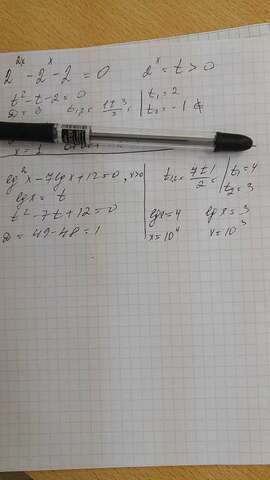 2^{2x} - 2^x - 2 = 0 2^x = t > 0
t² - t - 2 = 0 t_{1,2} = \frac{1±3}{2} = t_1 = 2
t_2 = -1
x = 1
lg²x - 7lgx + 12 = 0, x>0 t_{1,2} = \frac{7±1}{2} = t_1 = 4
t_2 = 3
lgx = t
t² - 7t + 12 = 0 lgx = 4 lgx = 3
D = 49 - 48 = 1 x = 10^4 x = 10^3